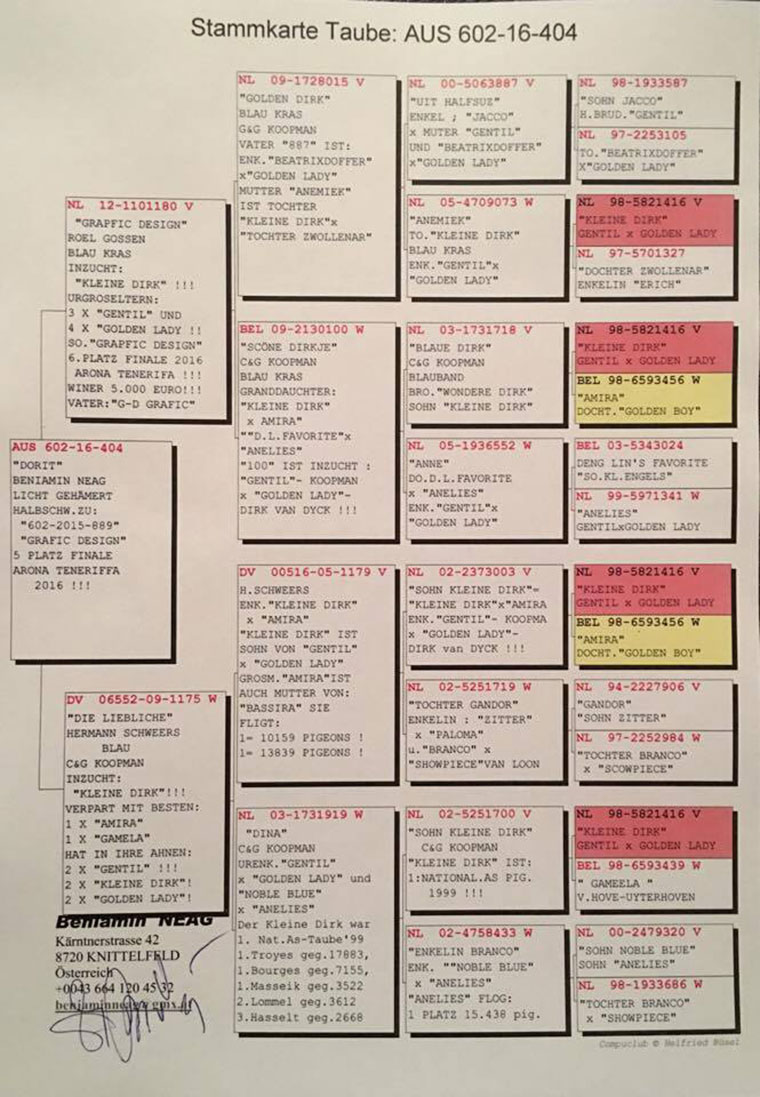 Stammkarte Taube: AUS 602-16-404
AUS 602-16-404
"DORIT"
BENJAMIN NEAG
LICHT GEHÄMERT
HALBSCHW.ZU:
"602-2015-889"
"GRAFIC DESIGN"
5 PLATZ FINALE
ARONA TENERIFFA
2016 !!!
NL 12-1101180 V
"GRAPFIC DESIGN"
ROEL GOSSEN
BLAU KRAS
INZUCHT:
"KLEINE DIRK" !!!
URGROSELTERN:
3 X "GENTIL" UND
4 X "GOLDEN LADY !!
SO."GRAPFIC DESIGN"
6.PLATZ FINALE 2016
ARONA TENERIFA !!!
WINER 5.000 EURO!!!
VATER:"G-D GRAFIC"
DV 06552-09-1175 W
"DIE LIEBLICHE"
HERMANN SCHWEERS
BLAU
C&G KOOPMAN
INZUCHT:
"KLEINE DIRK"!!!
VERPART MIT BESTEN:
1 X "AMIRA"
1 X "GAMELA"
HAT IN IHRE AHNEN:
2 X "GENTIL" !!!
2 X "KLEINE DIRK"!
2 X "GOLDEN LADY"!
NL 09-1728015 V
"GOLDEN DIRK"
BLAU KRAS
G&G KOOPMAN
VATER "887" IST:
ENK."BEATRIXDOFFER"
x"GOLDEN LADY"
MUTTER "ANEMIEK"
IST TOCHTER
"KLEINE DIRK"x
"TOCHTER ZWOLLENAR"
BEL 09-2130100 W
"SCÖNE DIRKJE"
C&G KOOPMAN
BLAU KRAS
GRANDDAUCHTER:
"KLEINE DIRK"
x AMIRA"
""D.L.FAVORITE"x
"ANELIES"
"100" IST INZUCHT :
"GENTIL"- KOOPMAN
x "GOLDEN LADY"-
DIRK VAN DYCK !!!
DV 00516-05-1179 V
H.SCHWEERS
ENK."KLEINE DIRK"
x "AMIRA"
"KLEINE DIRK" IST
SOHN VON "GENTIL"
x "GOLDEN LADY"
GROSM."AMIRA"IST
AUCH MUTTER VON:
"BASSIRA" SIE
FLIGT:
1= 10159 PIGEONS !
1= 13839 PIGEONS !
NL 03-1731919 W
"DINA"
C&G KOOPMAN
URENK."GENTIL"
x "GOLDEN LADY" und
"NOBLE BLUE"
x "ANELIES"
Der Kleine Dirk war
1. Nat.As-Taube'99
1.Troyes geg.17883,
1.Bourges geg.7155,
1.Masseik geg.3522
2.Lommel geg.3612
3.Hasselt geg.2668
NL 00-5063887 V
"UIT HALFSUZ"
ENKEL ; "JACCO"
x MUTER "GENTIL"
UND "BEATRIXDOFFER"
x"GOLDEN LADY"
NL 05-4709073 W
"ANEMIEK"
TO."KLEINE DIRK"
BLAU KRAS
ENK."GENTIL"x
"GOLDEN LADY"
NL 03-1731718 V
"BLAUE DIRK"
C&G KOOPMAN
BLAUBAND
BRO."WONDERE DIRK"
SOHN "KLEINE DIRK"
NL 05-1936552 W
"ANNE"
DO.D.L.FAVORITE
x "ANELIES"
ENK."GENTIL"x
"GOLDEN LADY"
NL 02-2373003 V
"SOHN KLEINE DIRK"=
"KLEINE DIRK"x"AMIRA
ENK."GENTIL"- KOOPMA
x "GOLDEN LADY"-
DIRK van DYCK !!!
NL 02-5251719 W
"TOCHTER GANDOR"
ENKELIN : "ZITTER"
x "PALOMA"
u."BRANCO" x
"SHOWPIECE"VAN LOON
NL 02-5251700 V
"SOHN KLEINE DIRK"
C&G KOOPMAN
"KLEINE DIRK" IST:
1:NATIONAL.AS PIG.
1999 !!!
NL 02-4758433 W
"ENKELIN BRANCO"
ENK. ""NOBLE BLUE"
x "ANELIES"
"ANELIES" FLOG:
1 PLATZ 15.438 pig.
NL 98-1933587
"SOHN JACCO"
H.BRUD."GENTIL"
NL 97-2253105
TO."BEATRIXDOFFER"
X"GOLDEN LADY"
NL 98-5821416 V
"KLEINE DIRK"
GENTIL x GOLDEN LADY
NL 97-5701327
"DOCHTER ZWOLLENAR"
ENKELIN "ERICH"
NL 98-5821416 V
"KLEINE DIRK"
GENTIL x GOLDEN LADY
BEL 98-6593456 W
"AMIRA"
DOCHT."GOLDEN BOY"
BEL 03-5343024
DENG LIN'S FAVORITE
"SO.KL.ENGELS"
NL 99-5971341 W
"ANELIES"
GENTILxGOLDEN LADY
NL 98-5821416 V
"KLEINE DIRK"
GENTIL x GOLDEN LADY
BEL 98-6593456 W
"AMIRA"
DOCHT."GOLDEN BOY"
NL 94-2227906 V
"GANDOR"
"SOHN ZITTER"
NL 97-2252984 W
"TOCHTER BRANCO"
x "SCOWPIECE"
NL 98-5821416 V
"KLEINE DIRK"
GENTIL x GOLDEN LADY
BEL 98-6593439 W
" GAMEELA "
V.HOVE-UYTERHOVEN
NL 00-2479320 V
"SOHN NOBLE BLUE"
SOHN "ANELIES"
NL 98-1933686 W
"TOCHTER BRANCO"
x "SHOWPIECE"
Benjamin NEAG
Kärntnerstrasse 42
8720 KNITTELFELD
Österreich
+0043 664 120 45 32
benjaminneag@gmx.
Compuclub © Helfried